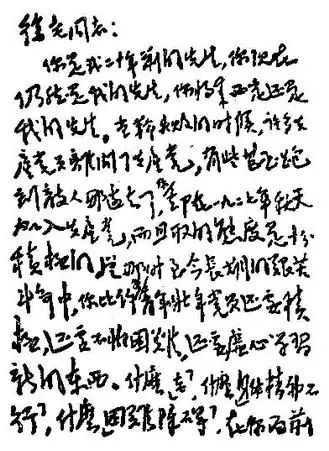 徐老同志：
你是我二十年前的先生，你现在
仍然是我的先生，你将来必定还是
我的先生。当革命失败的时候，许多共
产党员离开了共产党，有些甚至跑
到敌人那边去了，你却在一九二七年秋天
加入共产党，而且取的态度是十分
积极的。从那时至今长期的艰苦
斗争中，你比许多青年壮年党员还要积
极，还要不怕困难，还要虚心学习
新的东西。什麼“老”，什麼“身体精神不
行”，什麼“困难障碍”，在你面前